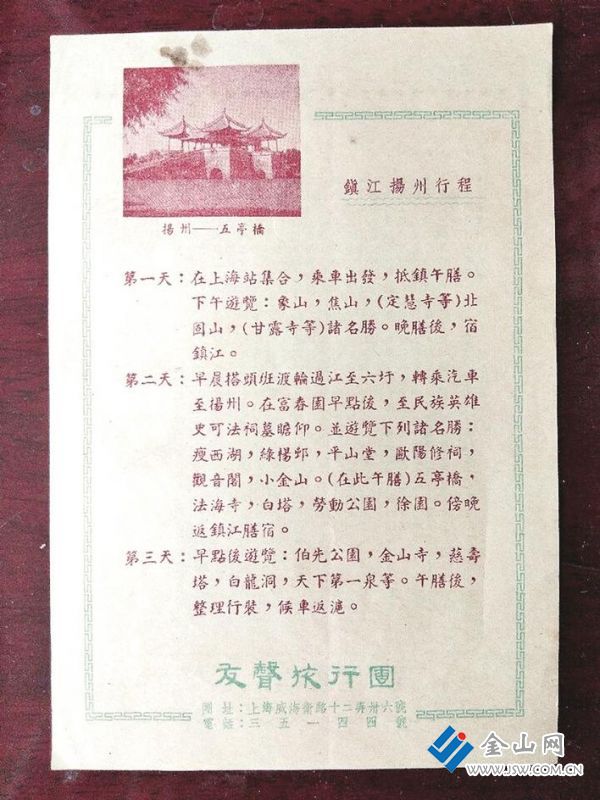 鎮江揚州行程
揚州——五亭橋
第一天：在上海站集合，乘車出發，抵鎮午膳。
下午遊覽：象山，焦山，(定慧寺等)北
固山，(甘露寺等)諸名勝。晚膳後，宿
鎮江。
第二天：早晨搭頭班渡輪過江至六圩，轉乘汽車
至揚州。在富春園早點後，至民族英雄
史可法祠墓瞻仰。並遊覽下列諸名勝：
瘦西湖，綠楊邨，平山堂，歐陽修祠，
觀音閣，小金山。(在此午膳)五亭橋，
法海寺，白塔，勞動公園，徐園。傍晚
返鎮江膳宿。
第三天：早點後遊覽：伯先公園，金山寺，慈壽
塔，白龍洞，天下第一泉等。午膳後，
整理行裝，候車返滬。
友聲旅行團
團址：上海威海衛路十二弄卅六號
電話：三五一四四號
金山网
WWW.JSW.COM.CN